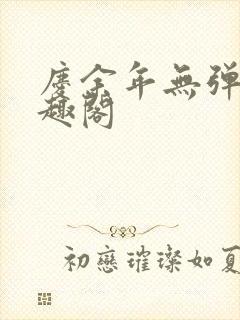 庆余年無弹
趣阁
初戀璀璨如夏